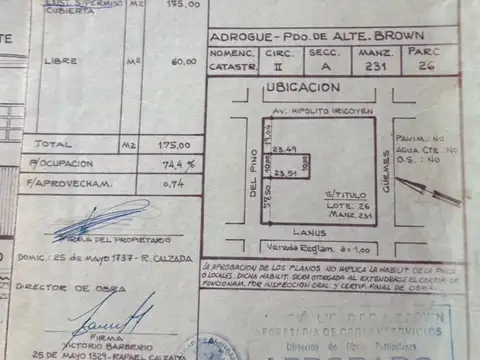 EXIST. S/PERMISO M2 175,00
CUBIERTA
LIBRE M2 60,00
TOTAL M2 175,00
F/OCUPACION 74,4%
F/APROVECHAM. 0,74
FIRMA DEL PROPIETARIO
DOMIC.: 25 DE MAYO 1737- R. CALZADA
DIRECTOR DE OBRA
FIRMA
VICTORIO BARBERIO
25 DE MAYO 1329- RAFAEL CALZADA
ADROGUE- PDO. DE ALTE. BROWN
NOMENC. CIRC. SECC. MANZ. PARC
CATASTR. II A 231 26
UBICACION
AV. HIPOLITO IRIGOYEN
DEL PINO
GÜEMES
LANUS
23.49
10,00
10,00
23,51
57.50
S/TITULO
LOTE: 26
MANZ. 231
PAVIM.: NO
AGUA CTE.: NO
O.S.: NO
Vereda Reglam. a= 1,00
LA APROBACION DE LOS PLANOS NO IMPLICA LA HABILIT. DE LA FINCA
O LOCALES. DICHA HABILIT. SERA OTORGADA AL EXTENDERSE EL CERTIF. DE
FUNCIONAM. POR INSPECCION GRAL. Y CERTIF. FINAL DE OBRA.
BROWN
SECRETARIA DE OBRAS Y SERVICIOS
Dirección de Obras Particulares